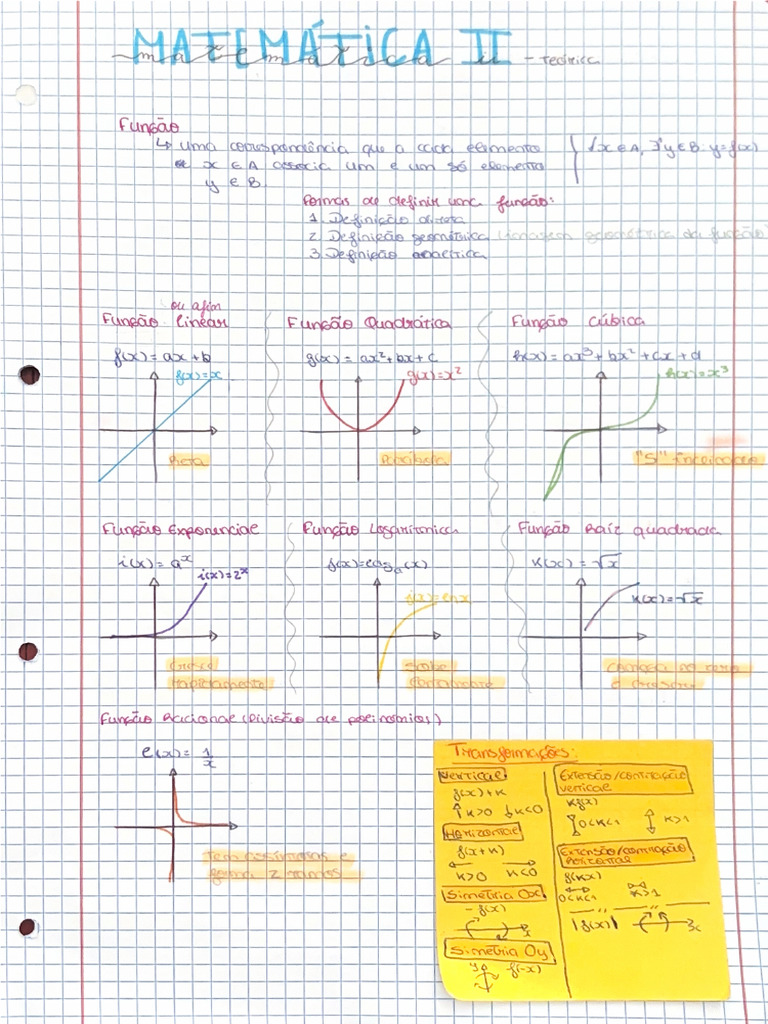 MATEMÁTICA II
matemática
- teórica
Função
↳ uma correspondência que a cada elemento
x ∈ A associa um e um só elemento
y ∈ B.
∀x ∈ A, ∃¹y ∈ B: y = f(x)
Formas de definir uma função:
1. Definição direta
2. Definição geométrica (imagem geométrica da função)
3. Definição analítica
ou afim
Função linear
f(x) = ax + b
f(x) = x
Reta
Função Quadrática
g(x) = ax² + bx + c
g(x) = x²
Parábola
Função Cúbica
h(x) = ax³ + bx² + cx + d
h(x) = x³
"S" inclinado
Função Exponencial
i(x) = aˣ
i(x) = 2ˣ
Cresce
rapidamente
Função Logarítmica
j(x) = logₐ(x)
j(x) = ln x
Sobe
lentamente
Função Raíz quadrada
k(x) = √x
k(x) = √x
Começa no zero
e cresce
Função Racional (Divisão de polinómios)
l(x) = 1/x
Tem assíntotas e
forma 2 ramos
Transformações:
Vertical
f(x) + k
↑ k>0 ↓ k<0
Horizontal
f(x+k)
k>0 k<0
Simetria Ox
- f(x)
x
Simetria Oy
y f(-x)
Extensão/contração
vertical
kf(x)
0<k<1 k>1
Extensão/contração
horizontal
f(kx)
0<k<1 k>1
|f(x)| x